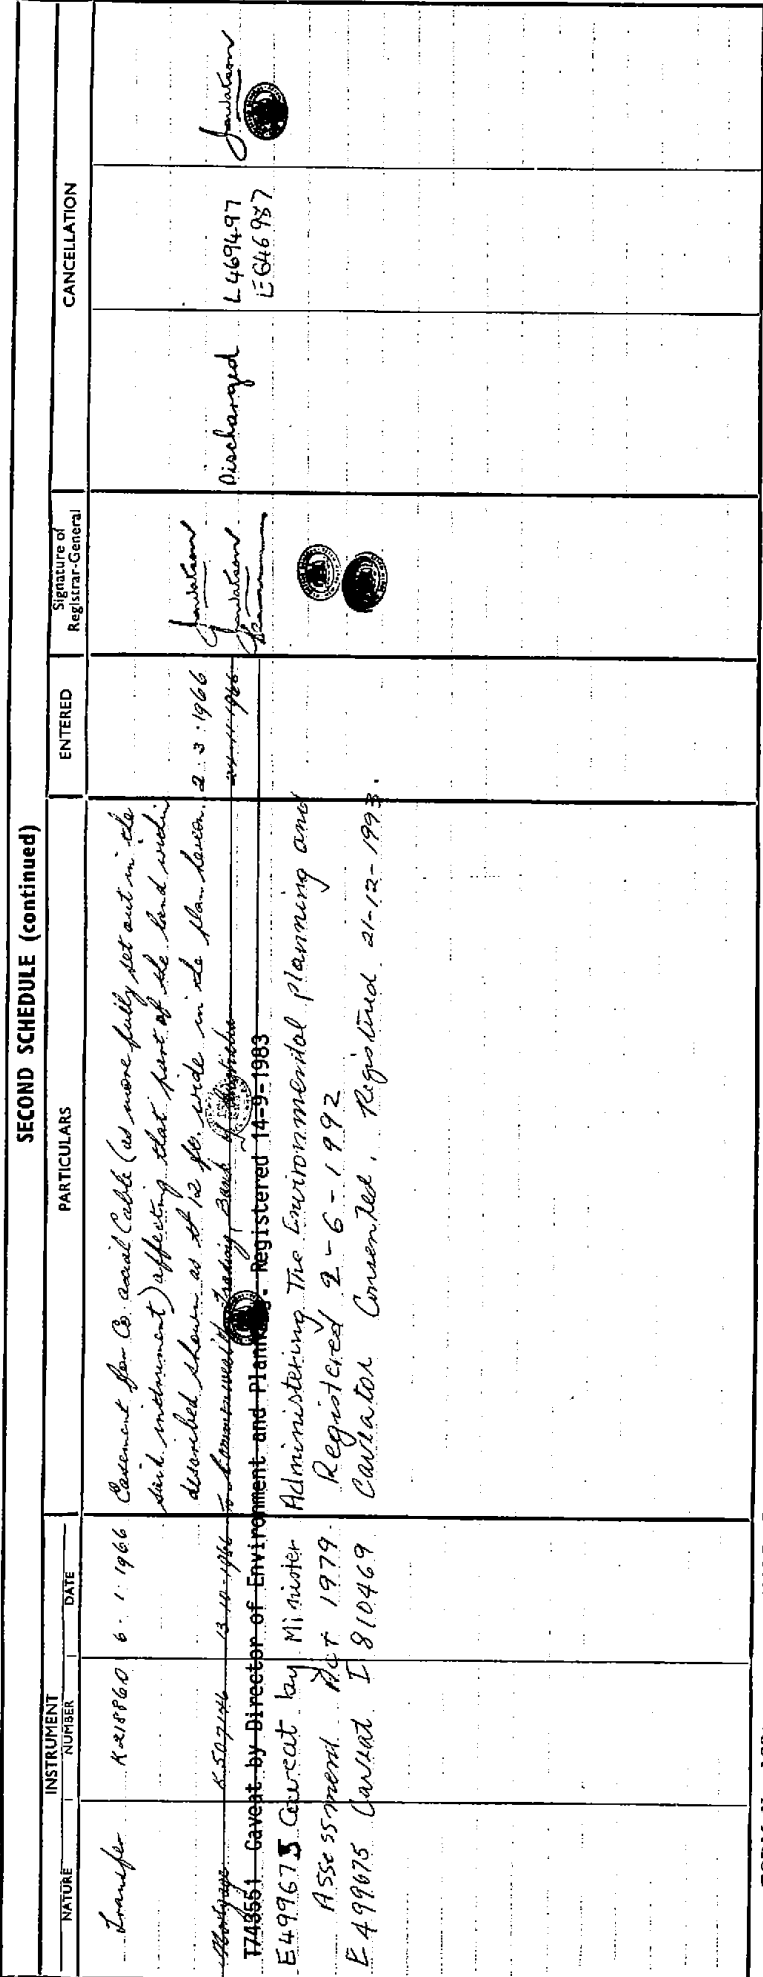 SECOND SCHEDULE (continued)
INSTRUMENT
NATURE NUMBER DATE PARTICULARS ENTERED Signature of Registrar-General CANCELLATION
Transfer K218860 6.1.1966 Easement for Co axial Cable (as more fully set out in the
said instrument) affecting that part of the land within
described shown as 12 ft. wide in the plan hereon. 2.3.1966 Jawatson
Mortgage K507146 13-10-1966 to Commonwealth Trading Bank of Australia 24.11.1966 Jawatson Discharged L469497 Jawatson
T743551 Caveat by Director of Environment and Planning. Registered 14-9-1983 E646987
E499675 Caveat by Minister Administering The Environmental planning and
Assessment Act 1979. Registered 2-6-1992
E499675 Caveat I 810469 Caveator Consented. Registered 21-12-1993.